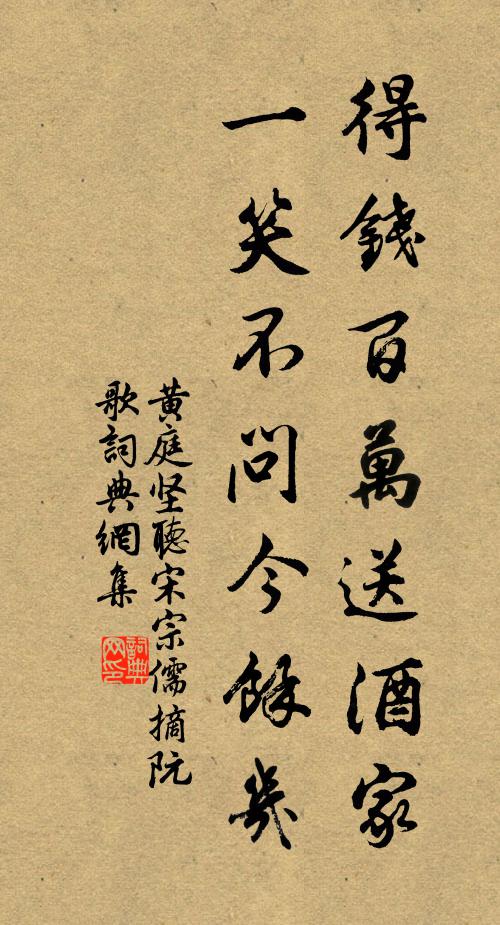 得錢百萬送酒家
一笑不問今餘幾
黃庭坚聽宋宗儒摘阮
歌詞典網集
詞典
网印